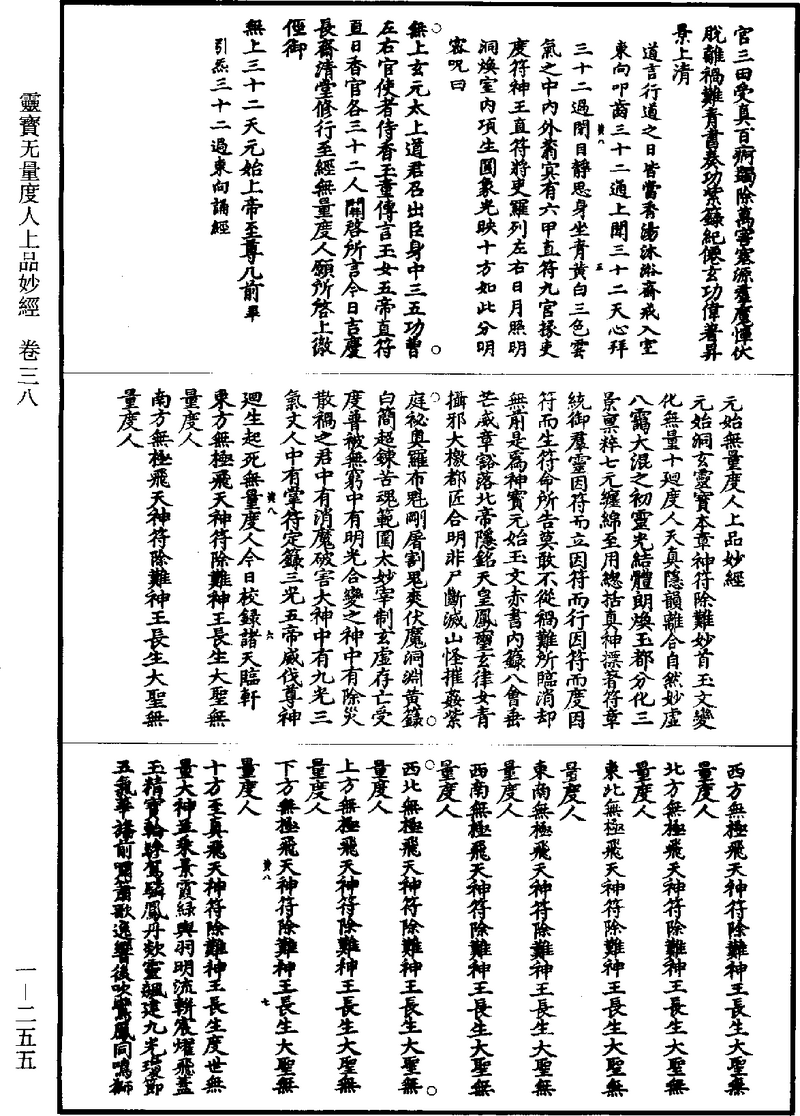 靈寶无量度人上品妙經　卷三八
一—二五五
官三田受真百痾蠲除萬害塞源羣魔憚伏
脫離禍難青書奏功紫籙紀僊玄功偉著昇
景上清
道言行道之日皆當香湯沐浴齋戒入室
東向叩齒三十二通上聞三十二天心拜
黃八
三十二過閉目靜思身坐青黃白三色雲
五
氣之中內外蓊冥有六甲直符九宮掾吏
度符神王直符將吏羅列左右日月照明
洞煥室內項生圓象光映十方如此分明
密咒曰
無上玄元太上道君召出臣身中三五功曹
左右官使者侍香玉童傳言玉女五帝直符
直日香官各三十二人關啓所言今日吉慶
長齋清堂修行至經無量度人願所啓上徹
徑御
無上三十二天元始上帝至尊几前畢
引炁三十二過東向誦經
元始無量度人上品妙經
元始洞玄靈寶本章神符除難妙首玉文變
化無量十迴度人天真隱韻離合自然妙虛
八靄大混之初靈光結體朗煥玉都分化三
景稟粹七元纏綿至用總括真神摽著符章
統御羣靈因符而立因符而行因符而度因
符而生符命所告莫敢不從禍難所臨消却
無前是爲神寶元始玉文赤書內籙八會垂
芒威章豁落北帝隱銘天皇鳳璽玄律女青
攝邪大檄都匠合明非尸斷滅山怪摧姦紫
庭祕奧羅布魁剛屠割鬼爽伏魔洞淵黃籙
白簡超鍊苦魂範圍太妙宰制玄虛存亡受
度普被無窮中有明光合變之神中有除災
散禍之君中有消魔破害大神中有九光三
氣丈人中有掌符定籙三光五帝威伐尊神
黃八
迴生起死無量度人今日校錄諸天臨軒
六
東方無極飛天神符除難神王長生大聖無
量度人
南方無極飛天神符除難神王長生大聖無
量度人
西方無極飛天神符除難神王長生大聖無
量度人
北方無極飛天神符除難神王長生大聖無
量度人
東北無極飛天神符除難神王長生大聖無
量度人
東南無極飛天神符除難神王長生大聖無
量度人
西南無極飛天神符除難神王長生大聖無
量度人
西北無極飛天神符除難神王長生大聖無
量度人
上方無極飛天神符除難神王長生大聖無
量度人
下方無極飛天神符除難神王長生大聖無
黃八
七
量度人
十方至真飛天神符除難神王長生度世無
量大神並乘景霞綠輿羽明流輧宸燿飛蓋
玉精寶輪駼駕驎鳳丹欻靈颷建九光瓊節
五氣華旛前嘯蕭歌逸響後吹鸞鳳同鳴獅